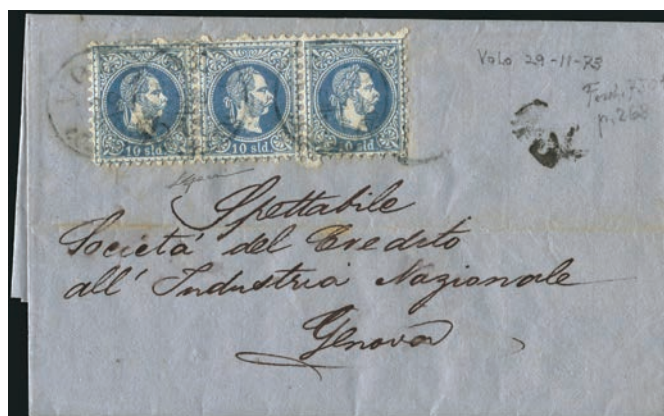 10 sld. 10 sld. 0 sld.
VO
Volo 29-11-73
p. 268
Spettabile
Società del Credito
all' Industria Nazionale
Genova